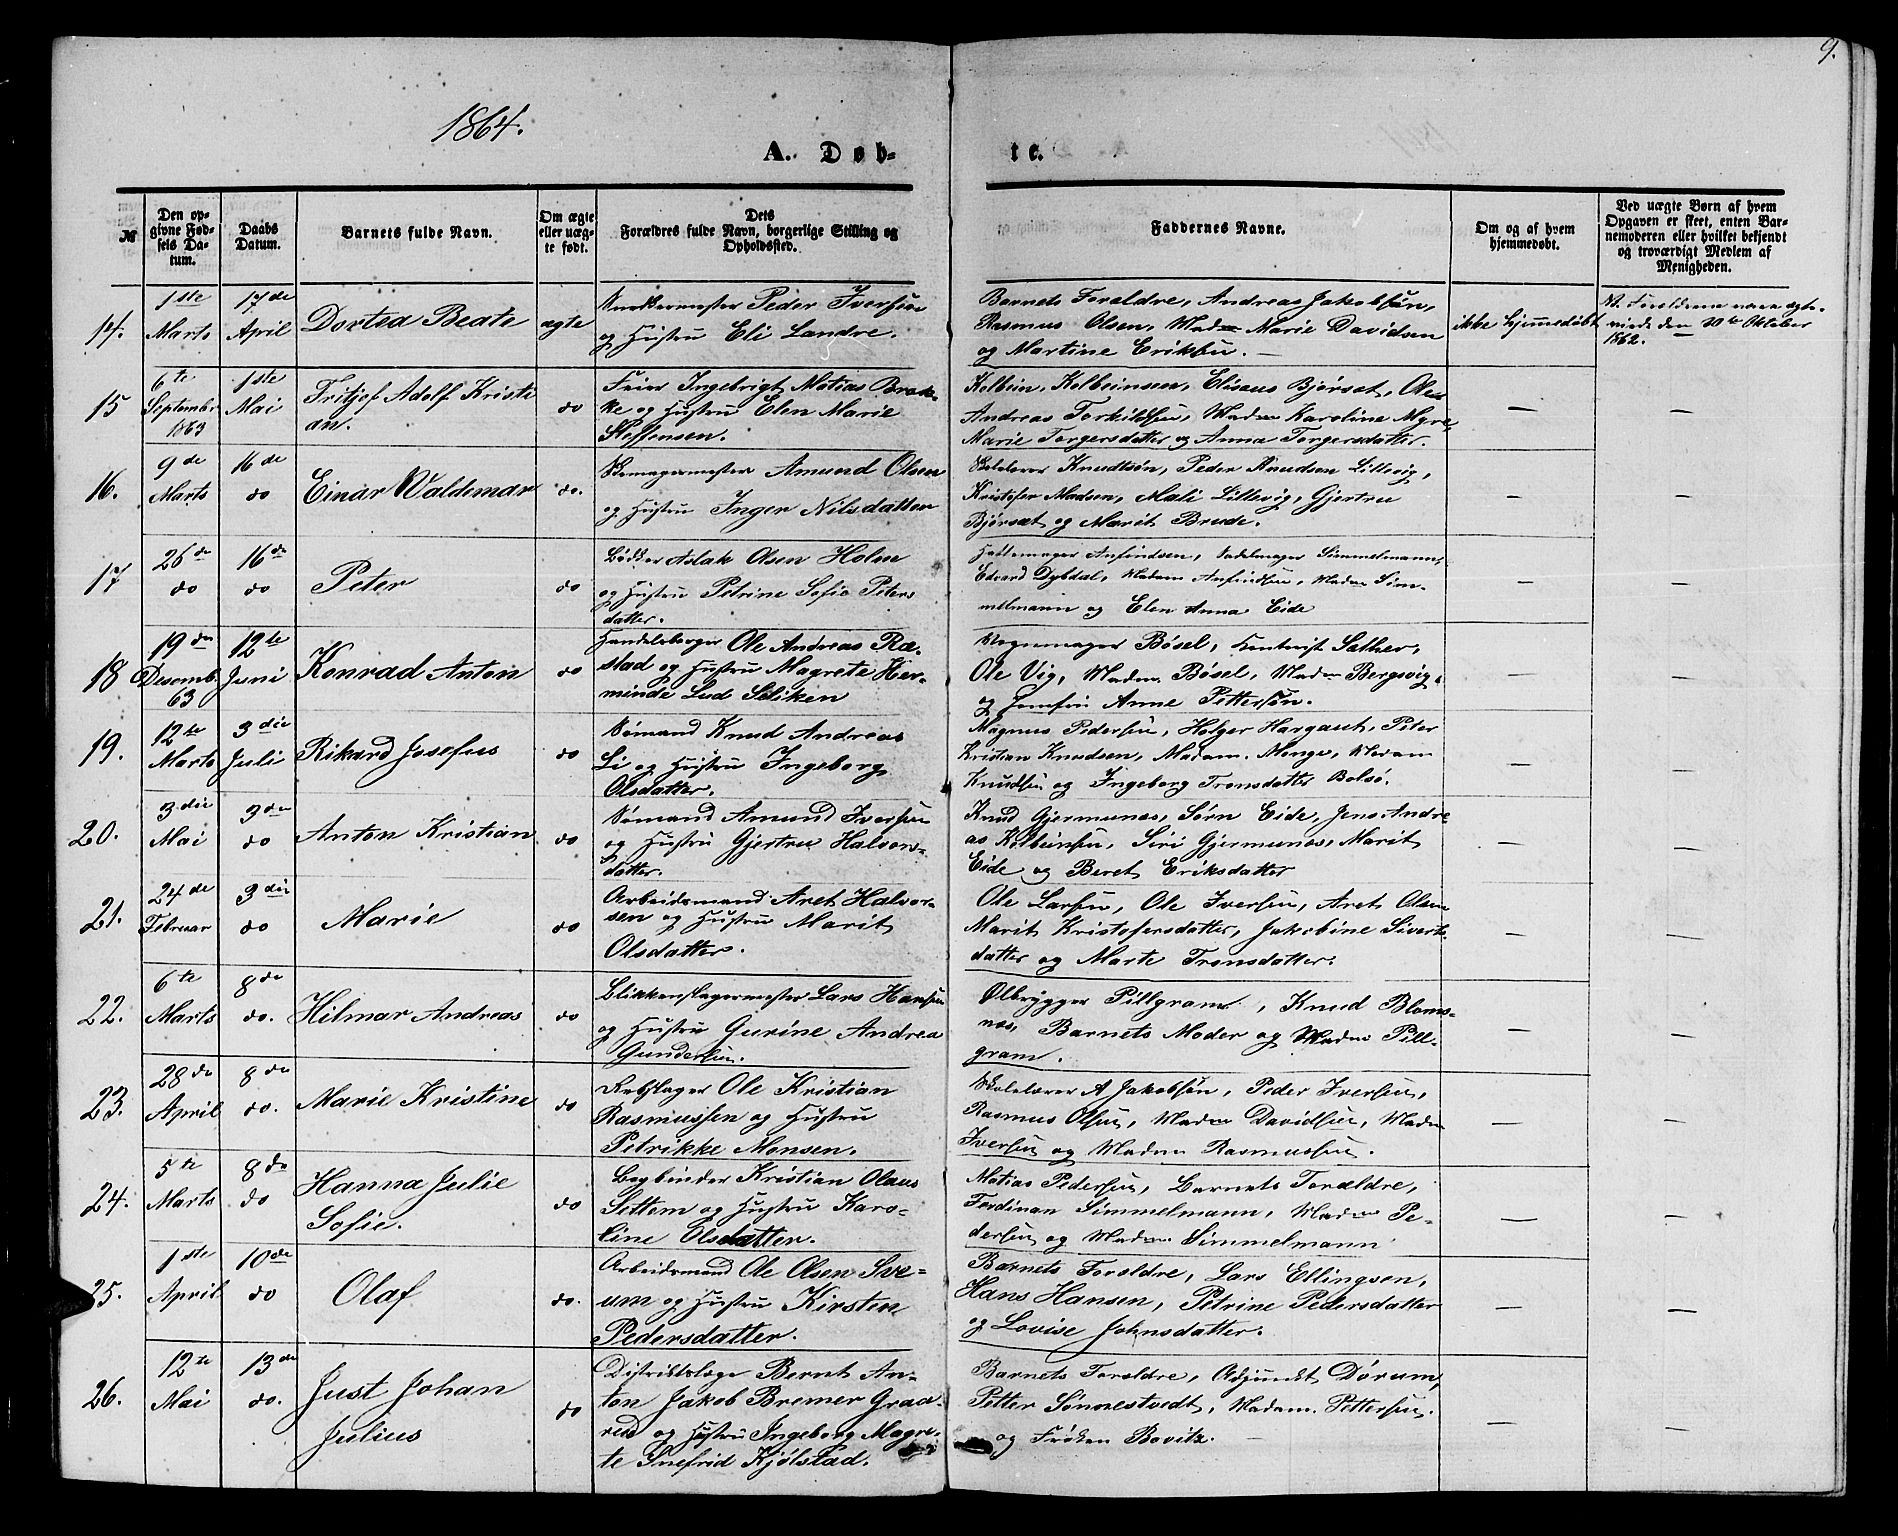 9.
1864.
A. Døb-
te.
№
Den op-
givne Fød-
sels Da-
tum.
Daabs
Datum.
Barnets fulde Navn.
Om ægte
eller uæg-
te født.
Dets
Forældres fulde Navn, borgerlige Stilling og
Opholdssted.
Faddernes Navne.
Om og af hvem
hjemmedøbt.
Ved uægte Børn af hvem
Opgaven er skeet, enten Bar-
nemoderen eller hvilket bekjendt
og troværdigt Medlem af
Menigheden.
14.
1ste
Marts
17de
April
Dortea Beate
ægte
Peder Iversen
og Hustru Eli Landre.
Barnets Foreldre, Andreas Jakobsøn,
Rasmus Olsen, Madm Marie Davidsen
og Martine Eriksen.
ikke hjemmedøbt
1862.
15
6te
September
1863
1ste
Mai
Fritjof Adolf Kristi
an.
do
Feier Ingebrigt Matias Brek-
ke og Hustru Elen Marie
Steffensen.
Kolbein Kolbeinsen, Eliseus Bjørset, Ole
Andreas Torkildsen, Madm Karoline Myre,
Marie Torgersdatter og Anna Torgersdatter.
—
—
16.
9de
Marts
16de
do
Einar Waldemar
do.
Skomagermester Amund Olsen
og Hustru Inger Nilsdatter
Skolelærer Knudtsøn, Peder Knudsen Lillevig,
Kristofer Madsen, Mali Lillevig, Gjertru
Bjørset og Marit Brude.
—
—
17
26de
do
16de
do
Peter
do
Bødker Aslak Olsen Holm
og Hustru Petrine Sofie Peters
datter.
Hattemager Anfindsen, Sadelmager Simmelmann,
Edvard Dybdal, Madam Anfindsen, Madm Sim-
melmann og Elen Anna Eide
—
—
18
19de
Desemb.
63
12te
Juni
Konrad Anton
do
Handelsborger Ole Andreas Ræ-
stad og Hustru Magrete Her-
minde Lud Sliken
Vognmager Bøsel, Kontorist Sather,
Ole Vig, Madm Bøsel, Madm Bergsvig
og Jomfru Anne Pettersøn.
—
—
19.
12te
Marts
3die
Juli
Rikard Josefus
do
Sømand Knud Andreas
Li og Hustru Ingeborg
Olsdatter.
Magnus Pedersen, Holger Hargaut, Peter
Kristian Knudsen, Madam Monge, Madam
Knudsen og Ingeborg Tronsdatter Bolsø.
—
—
20.
3die
Mai
3de
do
Anton Kristian
do
Sømand Amund Iversen
og Hustru Gjertru Halvors-
datter.
Knud Gjermunes, Sørn Eide, Jens Andre-
as Kolbeinsen, Siri Gjermunes, Marit
Eide og Beret Eriksdatter
—
—
21.
24de
Februar
3die
do
Marie
do
Arbeidsmand Aret Halvor-
sen og Hustru Marit
Olsdatter.
Ole Larsen, Ole Iversen, Aret Olsen
Marit Kristofersdatter, Jakobine Siverts
datter og Marte Tronsdatter.
—
—
22.
6te
Marts
8de
do.
Hilmar Andreas
do
Blikkenslagermester Lars Hansen
og Hustru Gurine Andrea
Gundersen.
Ølbrygger Pillgram, Knud Bloms-
nes, Barnets Moder og Madm Pill-
gram.
—
—
23.
28de
April
8de
do.
Marie Kristine
do
Rebslager Ole Kristian
Rasmussen og Hustru
Petrikke Monsen.
Skolelærer A Jakobsøn, Peder Iversen,
Rasmus Olsen, Madm Davidsen, Madm
Iversen og Madm Rasmussen.
—
—
24.
5te
Marts
8de
do
Hanna Julie
Sofie.
do
Bogbinder Kristian Olaus
Settem og Hustru Karo-
line Olsdatter.
Matias Pedersen, Barnets Foreldre,
Ferdinan Simmelmann, Madm Pe-
dersen og Madm Simmelmann
—
—
25.
1ste
April
10de
do
Olaf
do.
Arbeidsmand Ole Olsen Sve-
um og Hustru Kirsten
Pedersdatter.
Barnets Foreldre, Lars Ellingsen,
Hans Hansen, Petrine Pedersdatter
og Lovise Johnsdatter.
—
—
26.
12te
Mai
13de
do.
Just Johan
Julius
do
Distriktslæge Bernt An-
ton Jakob Bremer Graa-
rud og Hustru Ingeborg Magre-
te Snefrid Kjølstad.
Barnets Foreldre, Adjunkt Dørum,
Petter Sønnestvedt, Madam Pettersen
og Frøken Bovitz.
—
—